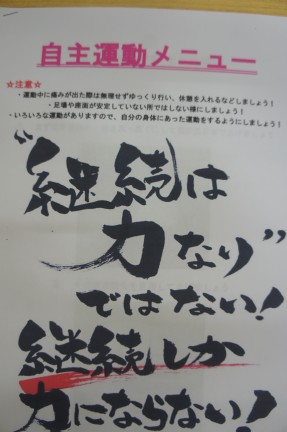 自主運動メニュー
☆注意☆
・運動中に痛みが出た際は無理せずゆっくり行い、休憩を入れるなどしましょう！
・足場や座面が安定していない所ではしない様にしましょう！
・いろいろな運動がありますので、自分の身体にあった運動をするようにしましょう！
“継続は
力なり”
ではない！
継続しか
力にならない！